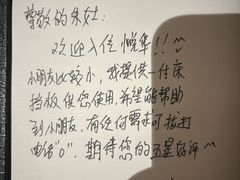 尊敬的朱女士：
欢迎入住悦隼!!~
小朋友比较小，我提供一付床
挡板供您使用，希望能帮助
到小朋友，有任何需求可拨打
电话“0”．期待您的五星好评^^